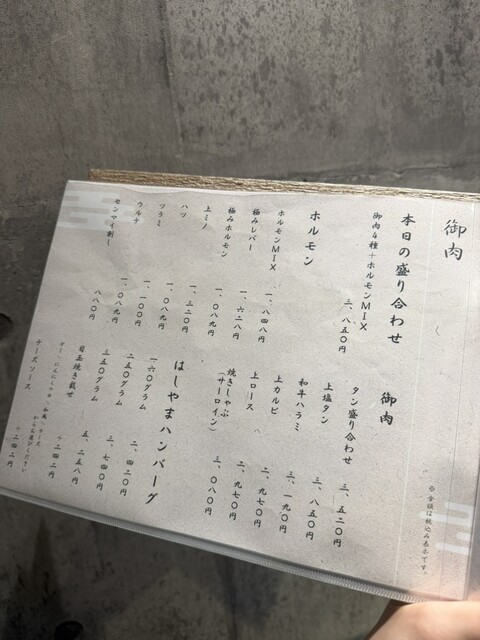 御肉
※金額は税込み表示です。
本日の盛り合わせ
御肉4種+ホルモンMIX 三、八五〇円
ホルモン
ホルモンMIX 一、八四八円
極みレバー 一、六二八円
極みホルモン 一、〇八九円
上ミノ 一、三二〇円
ハツ 一、〇八九円
ツラミ 一、一〇〇円
ウルテ 一、〇八九円
センマイ刺し 八八〇円
御肉
タン盛り合わせ 三、五二〇円
上塩タン 三、八五〇円
和牛ハラミ 三、一九〇円
上カルビ 二、九七〇円
上ロース 二、九七〇円
焼きしゃぶ
(サーロイン) 三、〇八〇円
はしやまハンバーグ
一六〇グラム 二、四二〇円
二五〇グラム 三、七四〇円
三五〇グラム 五、二八〇円
目玉焼き載せ +二四二円
からお選びください
チーズソース +二四二円